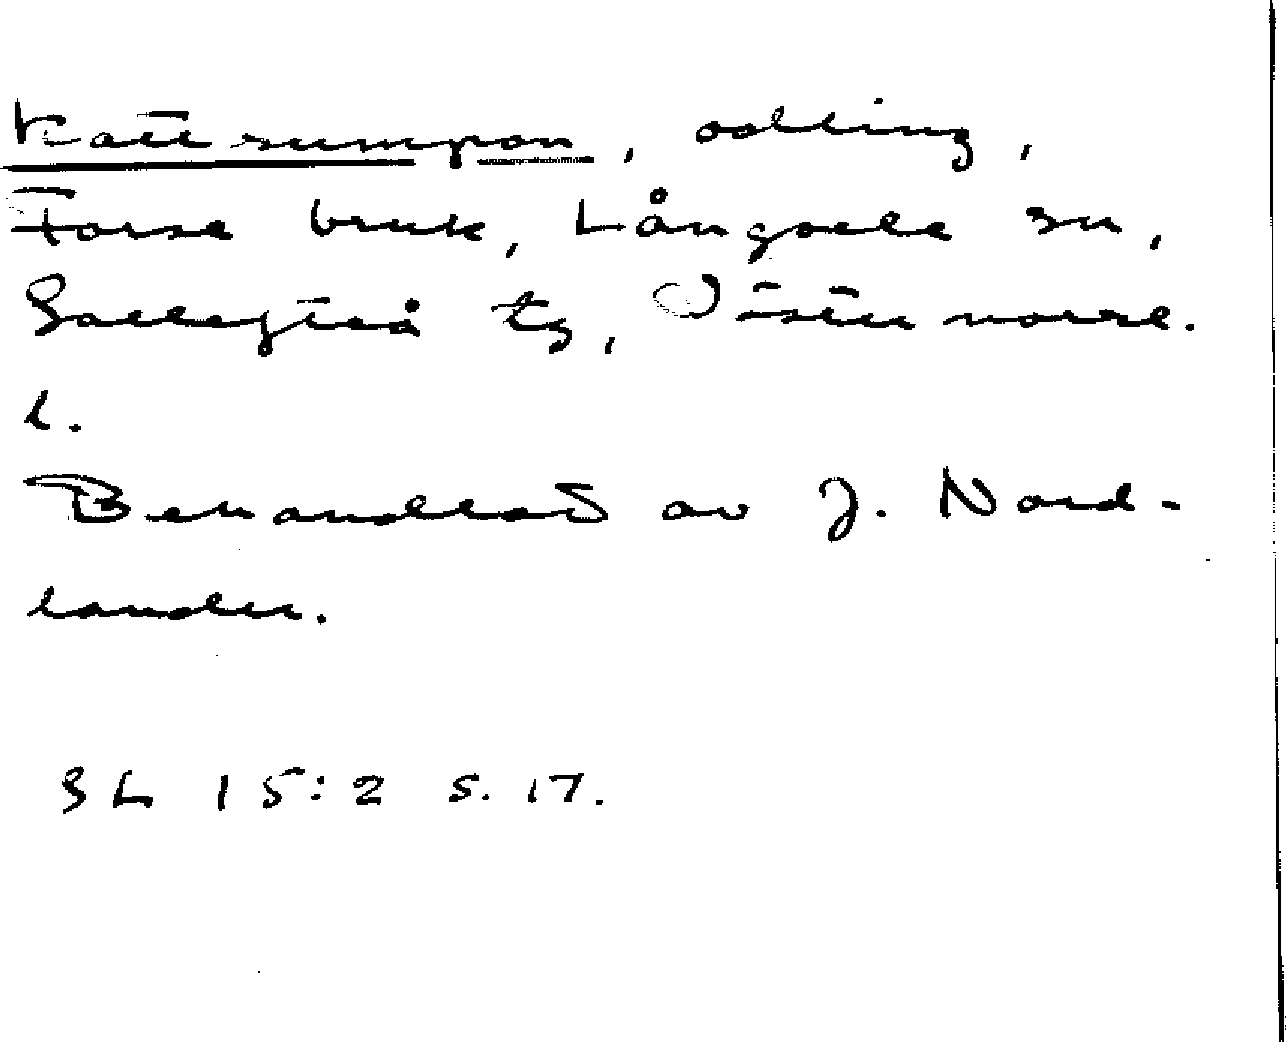 Kattsumpan, odling,
Forse bruk, Långsele sn,
Sollefteå tg, Västernorrl.
l.
Behandlad av J. Nord-
lander.
SL 15:2 s. 17.